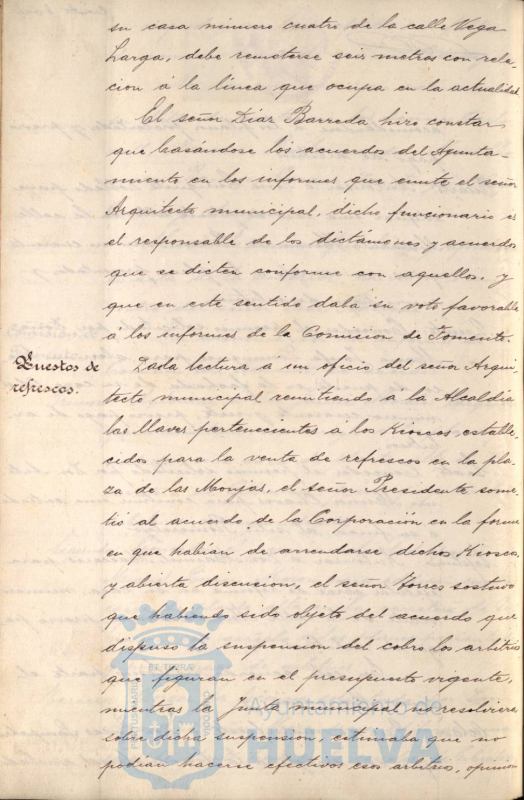 su casa número cuatro de la calle Vega
Larga, debe remeterse seis metros con rela
cion á la linea que ocupa en la actualidad.
El señor Diaz Barreda hizo constar
que basándose los acuerdos del Ayunta-
miento en los informes que emite el señor
Arquitecto municipal, dicho funcionario es
el responsable de los dictámenes y acuerdos
que se dicten conforme con aquellos, y
que en este sentido daba su voto favorable
á los informes de la Comision de Fomento.
Puestos de
refrescos.
Dada lectura á un oficio del señor Arqui-
tecto municipal remitiendo a la Alcaldia
las llaves pertenecientes á los Kioscos, estable-
cidos para la venta de refrescos en la pla-
za de las Monjas, el señor Presidente some-
tió al acuerdo de la Corporación en la forma
en que habian de arrendarse dichos Kioscos,
y abierta discusion, el señor Torres sostuvo
que habiendo sido objeto del acuerdo que
dispuso la suspension del cobro los arbitrios
que figuran en el presupuesto vigente,
mientras la Junta municipal no resolviera
sobre dicha suspension, estimaba que no
podian hacerse efectivos esos arbitrios, opinion
Ayuntamiento de
HUELVA